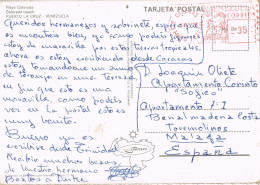 Playa Colorada
Colorada beach
PUERTO LA CRUZ - VENEZUELA
TARJETA POSTAL
Queridos hermanos y sobrinets, espero que
os encontreis bien y yo como podeis figuraros
estoy de maravilla por estas tierras tropicales,
ahora os estoy escribiendo desde Caracas
estoy tomandome un zumo
de naranja en una terraza,
que esto es una
maravilla, como podeis
ver esto es
muy bonito.
Bueno ya os
escribire desde Trinidad
Recibir muchos besos
de vuestro hermano
35
D. Joaquin Oliete
Apartamento Corinto
"Sofico"
Apartamento 7-I
Benalmadena Costa
Torremolinos
Malaga
España